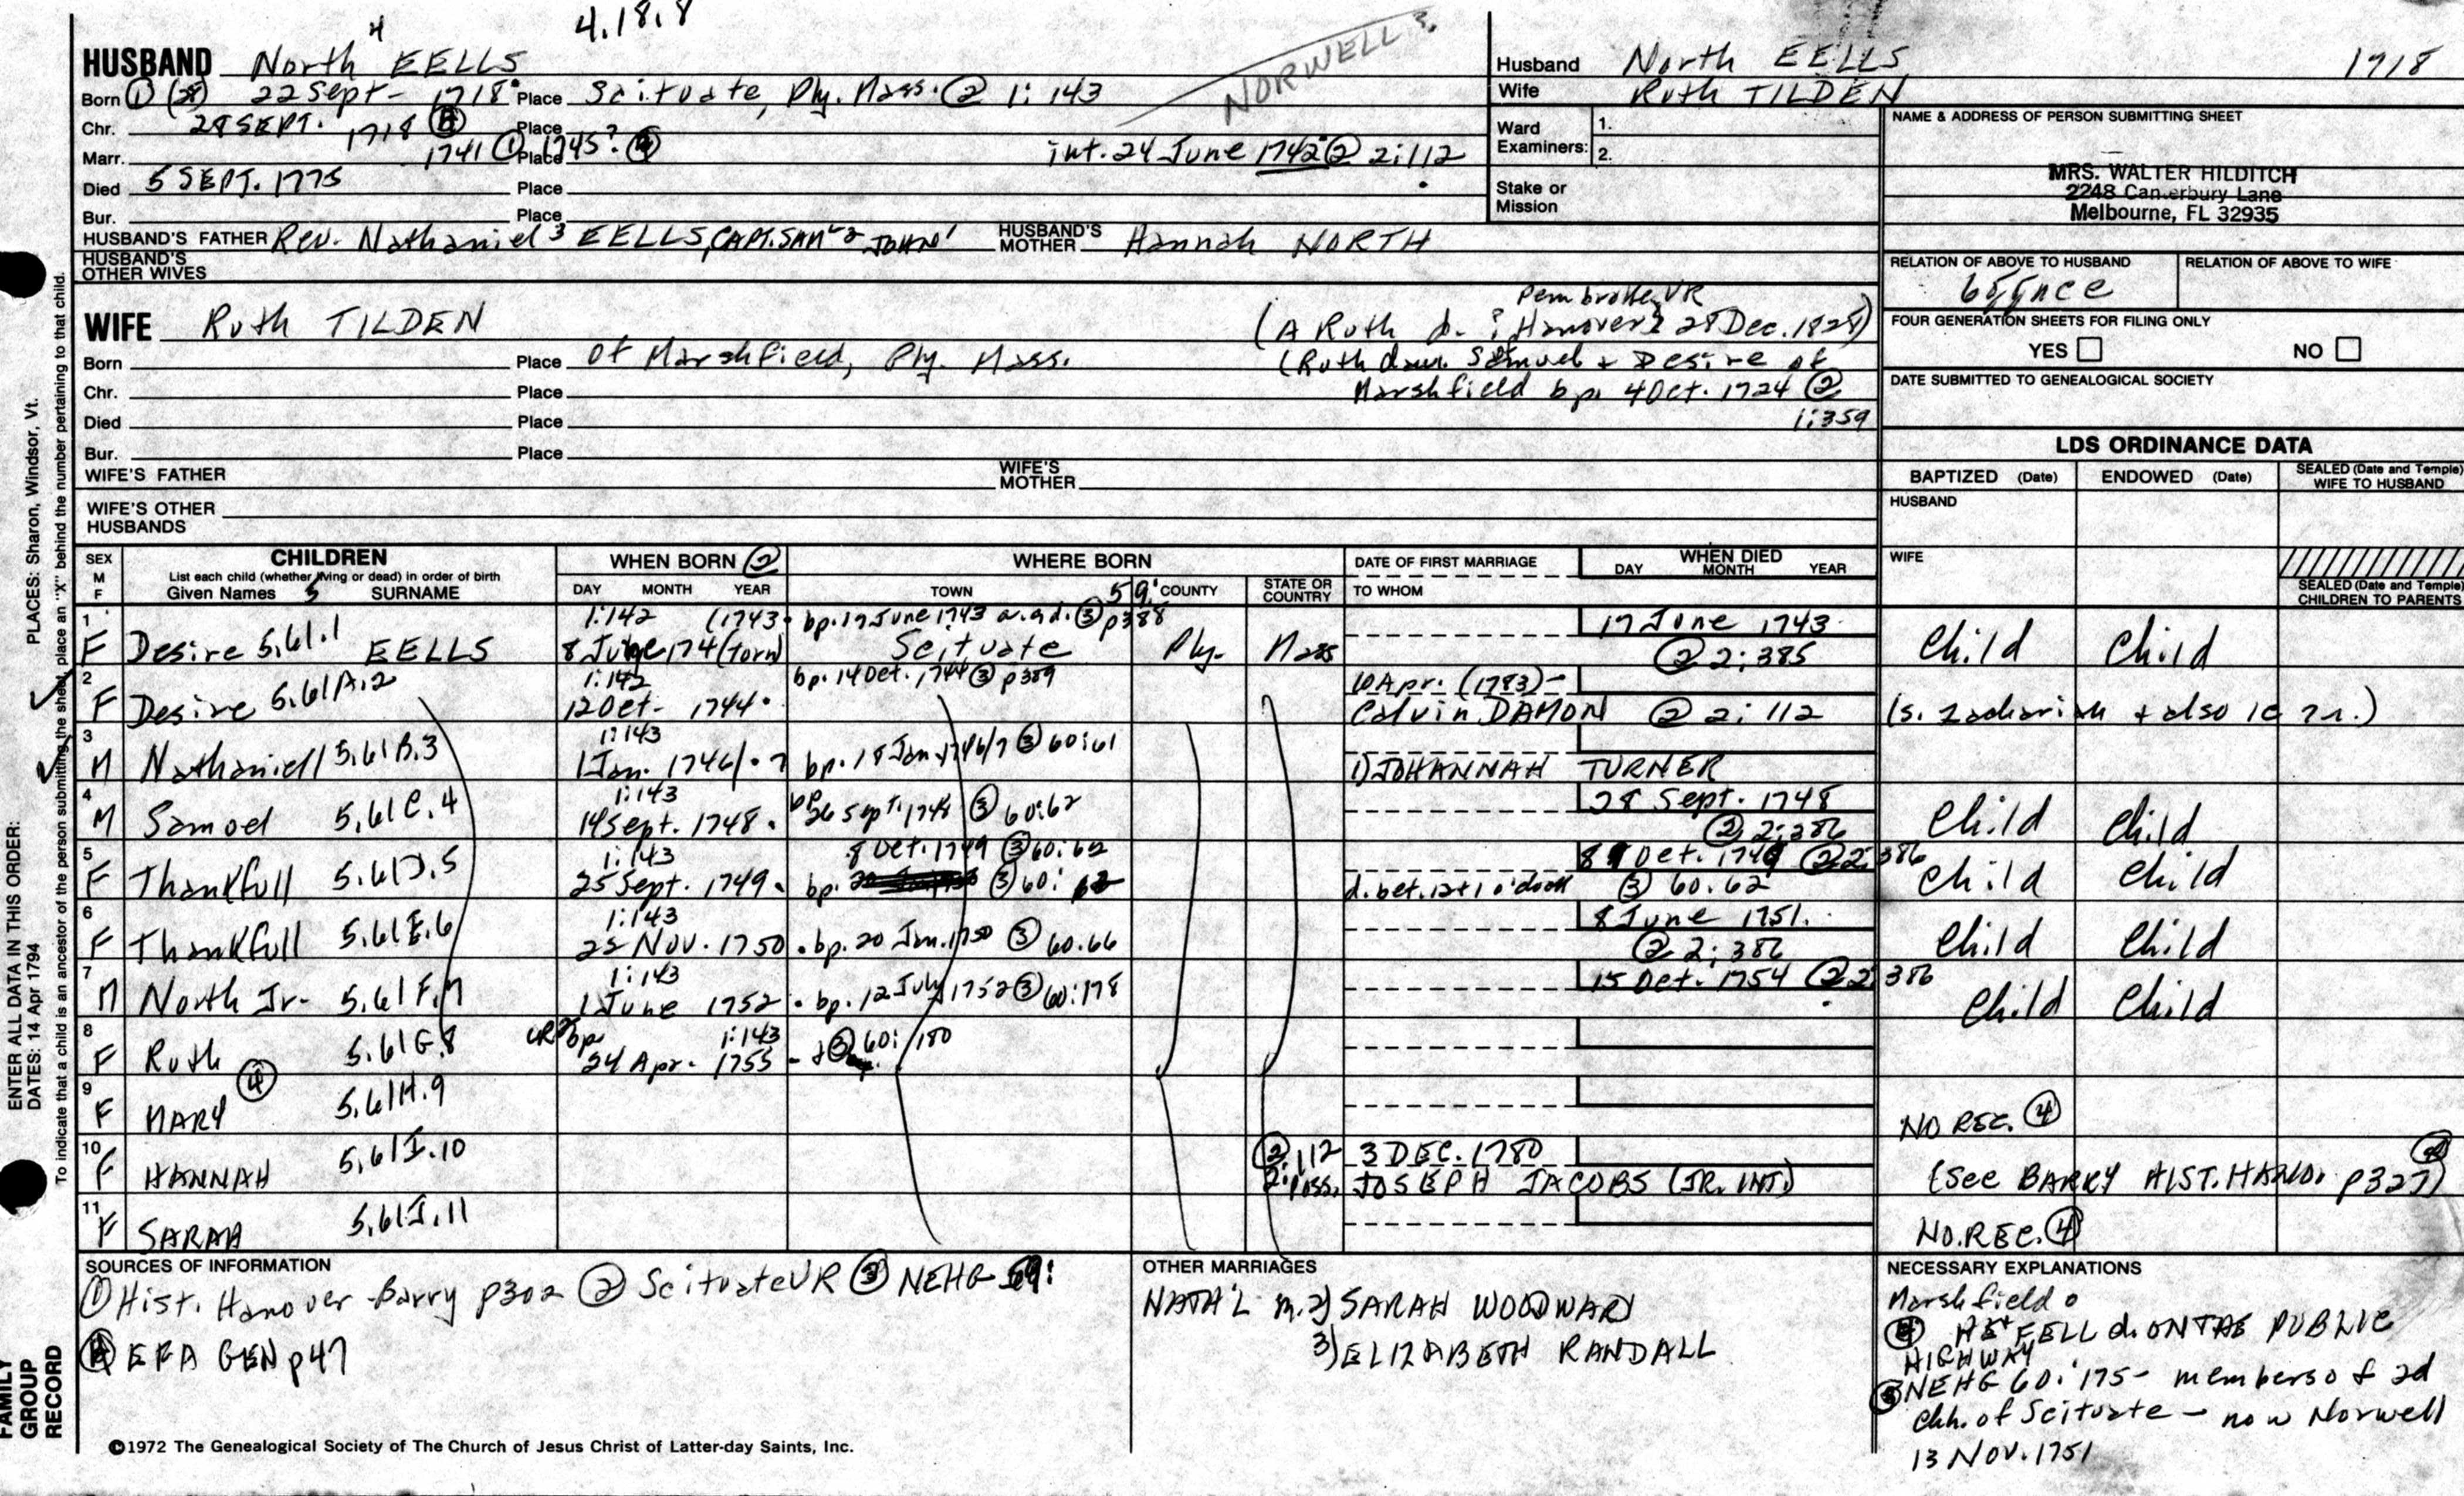 4.18.8
NORWELL?
HUSBAND North 4 EELLS
Born ① (28) 22 Sept- 1718 Place Scituate, Ply. Mass. ② 1:143
Chr. 28 SEPT. 1718 Place
Marr. 1741 ① Place 1745? ④ int. 24 June 1742 ② 2:112
Died 5 SEPT. 1775 Place
Bur. Place
HUSBAND'S FATHER Rev. Nathaniel 3 EELLS, CAPT. SAM'L 2 JOHN 1 HUSBAND'S MOTHER Hannah NORTH
HUSBAND'S OTHER WIVES
Husband North EELLS 1718
Wife Ruth TILDEN
Ward Examiners: 1.
2.
Stake or Mission
NAME & ADDRESS OF PERSON SUBMITTING SHEET
MRS. WALTER HILDITCH
2248 Canterbury Lane
Melbourne, FL 32935
RELATION OF ABOVE TO HUSBAND RELATION OF ABOVE TO WIFE
FOUR GENERATION SHEETS FOR FILING ONLY
YES NO
DATE SUBMITTED TO GENEALOGICAL SOCIETY
WIFE Ruth TILDEN
Pembroke VR
(A Ruth b. ? Hanover? 28 Dec. 1828)
Born Place of Marshfield, Ply. Mass. (Ruth dau. Samuel + Desire of
Chr. Place Marshfield bp. 4 Oct. 1724 ②
Died Place 1:359
Bur. Place
WIFE'S FATHER WIFE'S MOTHER
WIFE'S OTHER HUSBANDS
LDS ORDINANCE DATA
BAPTIZED (Date) ENDOWED (Date) SEALED (Date and Temple) WIFE TO HUSBAND
HUSBAND
WIFE
SEALED (Date and Temple) CHILDREN TO PARENTS
SEX M F
CHILDREN
List each child (whether living or dead) in order of birth
Given Names 5 SURNAME
WHEN BORN ②
DAY MONTH YEAR
WHERE BORN
TOWN 59: COUNTY STATE OR COUNTRY
DATE OF FIRST MARRIAGE
TO WHOM
WHEN DIED
DAY MONTH YEAR
1 1:142 (1743. bp. 17 June 1743 ③ p388 17 June 1743
F Desire 5.61.1 EELLS 8 June 174(torn) Scituate Ply. Mass ② 2:385 Child Child
2 1:142 bp. 14 Oct. 1744 ③ p389 10 Apr. (1783)-
F Desire 5.61A.2 12 Oct- 1744. Calvin DAMON ② 2:112 (s. Zachariah + also
3 1:143
M Nathaniell 5.61B.3 1 Jan. 1746/.7 bp. 18 Jan 1746/7 ③ 60:61 1) JOHANNAH TURNER
4 1:143 28 Sept. 1748
M Samuel 5.61C.4 14 Sept. 1748. bp. 26 Sept. 1748 ③ 60:62 ② 2:386 Child Child
5 1:143 8 Oct. 1749 ③ 60:62 8 Oct. 1749 ② 2:386
F Thankfull 5.61D.5 25 Sept. 1749. bp. ③ 60: d. bet. 12+1 o'clock ③ 60.62 Child Child
6 1:143 8 June 1751.
F Thankfull 5.61E.6 25 Nov. 1750 . bp. 20 Jan. 1750 ③ 60.66 ② 2:386 Child Child
7 1:143 15 Oct. 1754 ② 2:386
M North Jr- 5.61F.7 1 June 1752 . bp. 12 July 1752 ③ 60:178 Child Child
8 bp 1:143 ③ 60:/180
F Ruth 5.61G.8 24 Apr. 1755
9 ④
F MARY 5.61H.9 NO REC. ④
10 ② 2:112 3 DEC. 1780
F HANNAH 5.61I.10 JOSEPH JACOBS (JR. INT.) (See BARRY HIST. HANO. p327)
11
F SARAH 5.61J.11 NO.REC. ④
SOURCES OF INFORMATION
① Hist. Hanover - Barry p302 ② Scituate VR ③ NEHG 59:
④ EFA GEN p47
OTHER MARRIAGES
NATH'L m. 2) SARAH WOODWARD
3) ELIZABETH RANDALL
NECESSARY EXPLANATIONS
Marshfield
FELL d. ON THE PUBLIC
HIGHWAY
③ NEHG 60:175- members of 2d
Chh. of Scituate - now Norwell
13 NOV. 1751
©1972 The Genealogical Society of The Church of Jesus Christ of Latter-day Saints, Inc.
FAMILY GROUP RECORD
ENTER ALL DATA IN THIS ORDER:
DATES: 14 Apr 1794 PLACES: Sharon, Windsor, Vt.
To indicate that a child is an ancestor of the person submitting the sheet, place an "X" behind the number pertaining to that child.